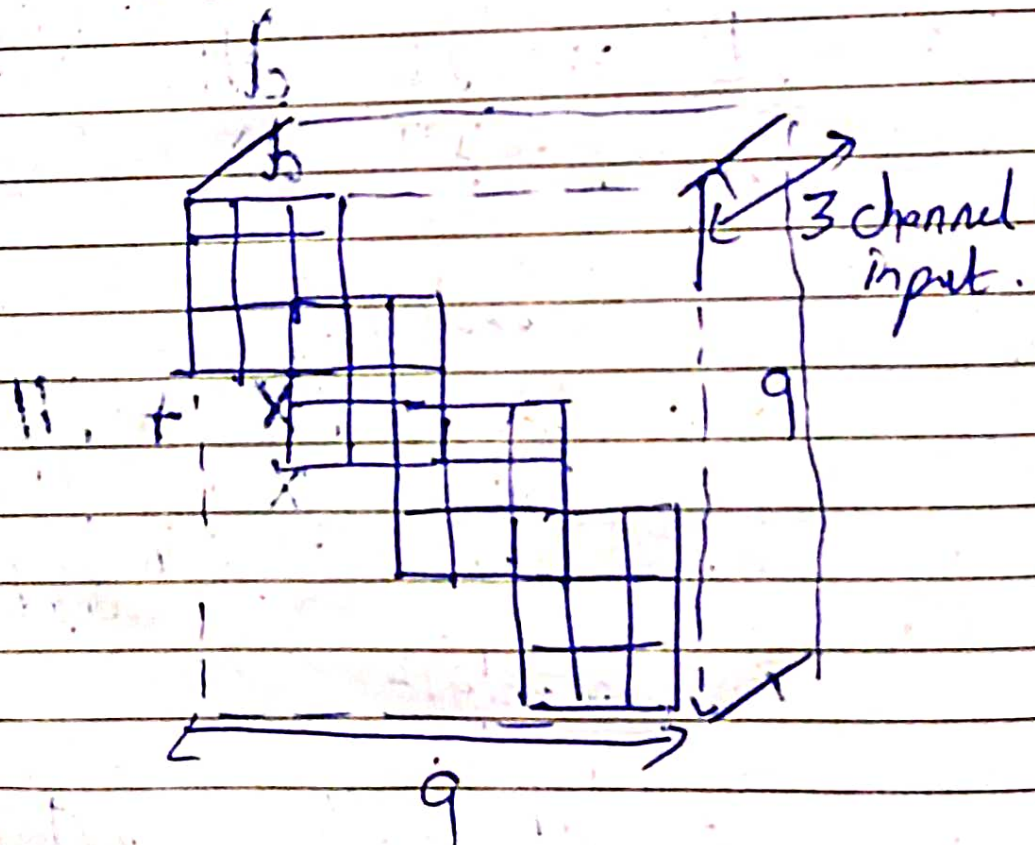 3 channel
input.
9
9